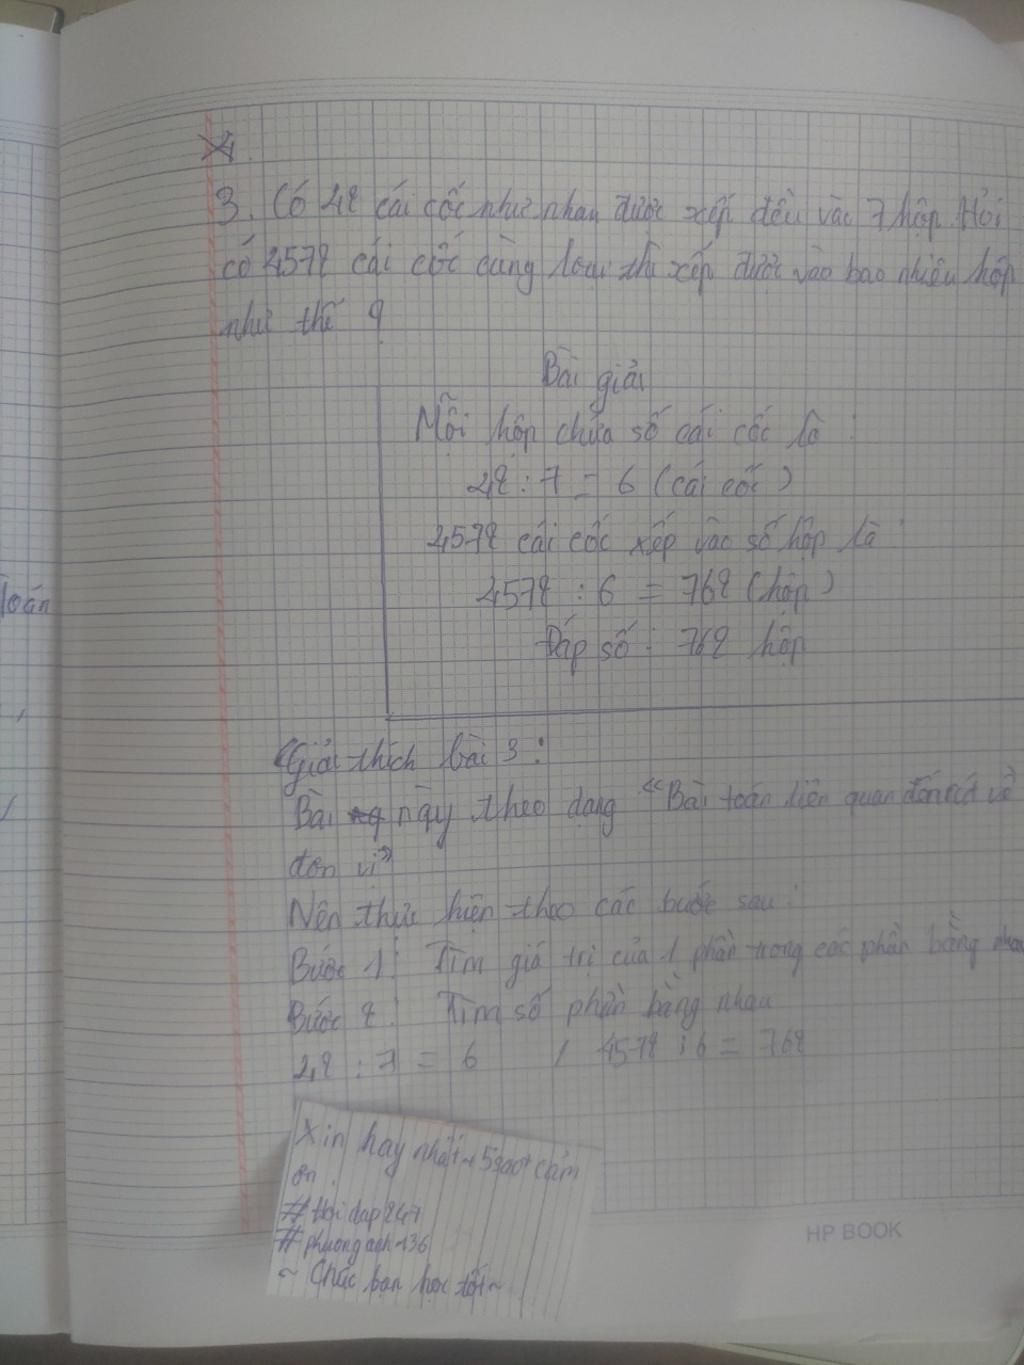 4.
3. Có 42 cái cốc như nhau được xếp đều vào 7 hộp. Hỏi
có 4572 cái cốc cùng loại thì xếp được vào bao nhiêu hộp
như thế ?
Bài giải
Mỗi hộp chứa số cái cốc là :
42 : 7 = 6 (cái cốc)
4572 cái cốc xếp vào số hộp là :
4572 : 6 = 762 (hộp)
Đáp số : 762 hộp
Giải thích bài 3 :
Bài này theo dạng "Bài toán liên quan đến rút về
đơn vị"
Nên thực hiện theo các bước sau :
Bước 1 : Tìm giá trị của 1 phần trong các phần bằng nhau
Bước 2 : Tìm số phần bằng nhau
42 : 7 = 6 / 4572 : 6 = 762
Xin hay nhất + 5 sao + cảm
ơn.
#Hoidap247
#phuonganh136
~ Chúc bạn học tốt ~
HP BOOK
Toán